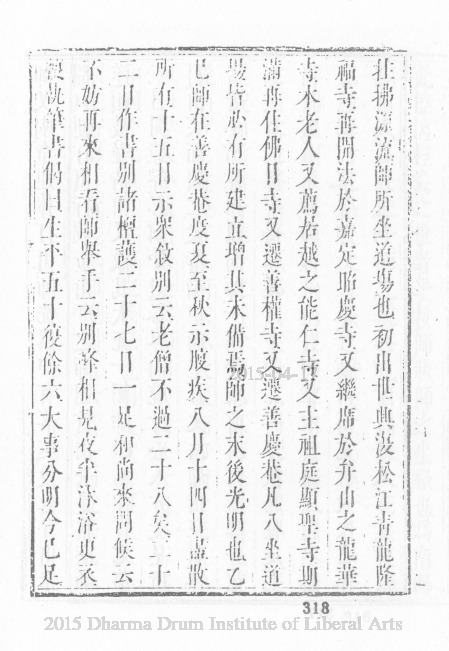 拄拂源流師所坐道場也初出世興復松江青龍隆
福寺再開法於嘉定昭慶寺又繼席於弁山之龍華
寺木老人又薦居越之能仁寺又主祖庭顯聖寺期
滿再住佛日寺又遷善權寺又遷善慶菴凡八坐道
場皆必有所建立增其未備焉師之末後光明也乙
巳師在善慶菴度夏至秋示腹疾八月十四日盡散
所有十五日示眾敘別云老僧不過二十八矣二十
二日作書別諸檀護二十七日一足和尚來問候云
不妨再來相看師舉手云別峰相見夜半沐浴更衣
復執筆書偈曰生平五十復餘六大事分明今已足
318
2015-04-1
2015 Dharma Drum Institute of Liberal Arts